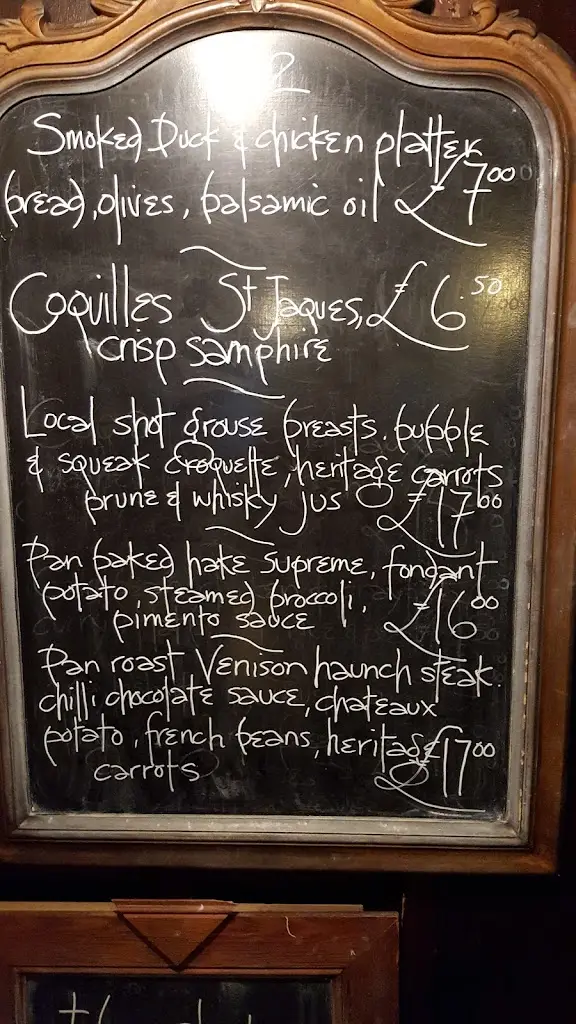 2
Smoked Duck & chicken platter
bread, olives, balsamic oil £7.00
Coquilles St Jaques, £6.50
crisp samphire
Local shot grouse breasts. bubble
& squeak croquette, heritage carrots
prune & whisky jus £17.00
Pan baked hake supreme, fondant
potato, steamed broccoli,
pimento sauce £16.00
Pan roast Venison haunch steak.
chilli chocolate sauce, chateaux
potato, french beans, heritage £17.00
carrots